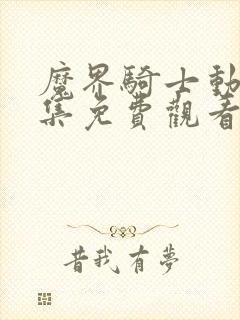 魔界騎士動
集免費觀看
昔我有夢